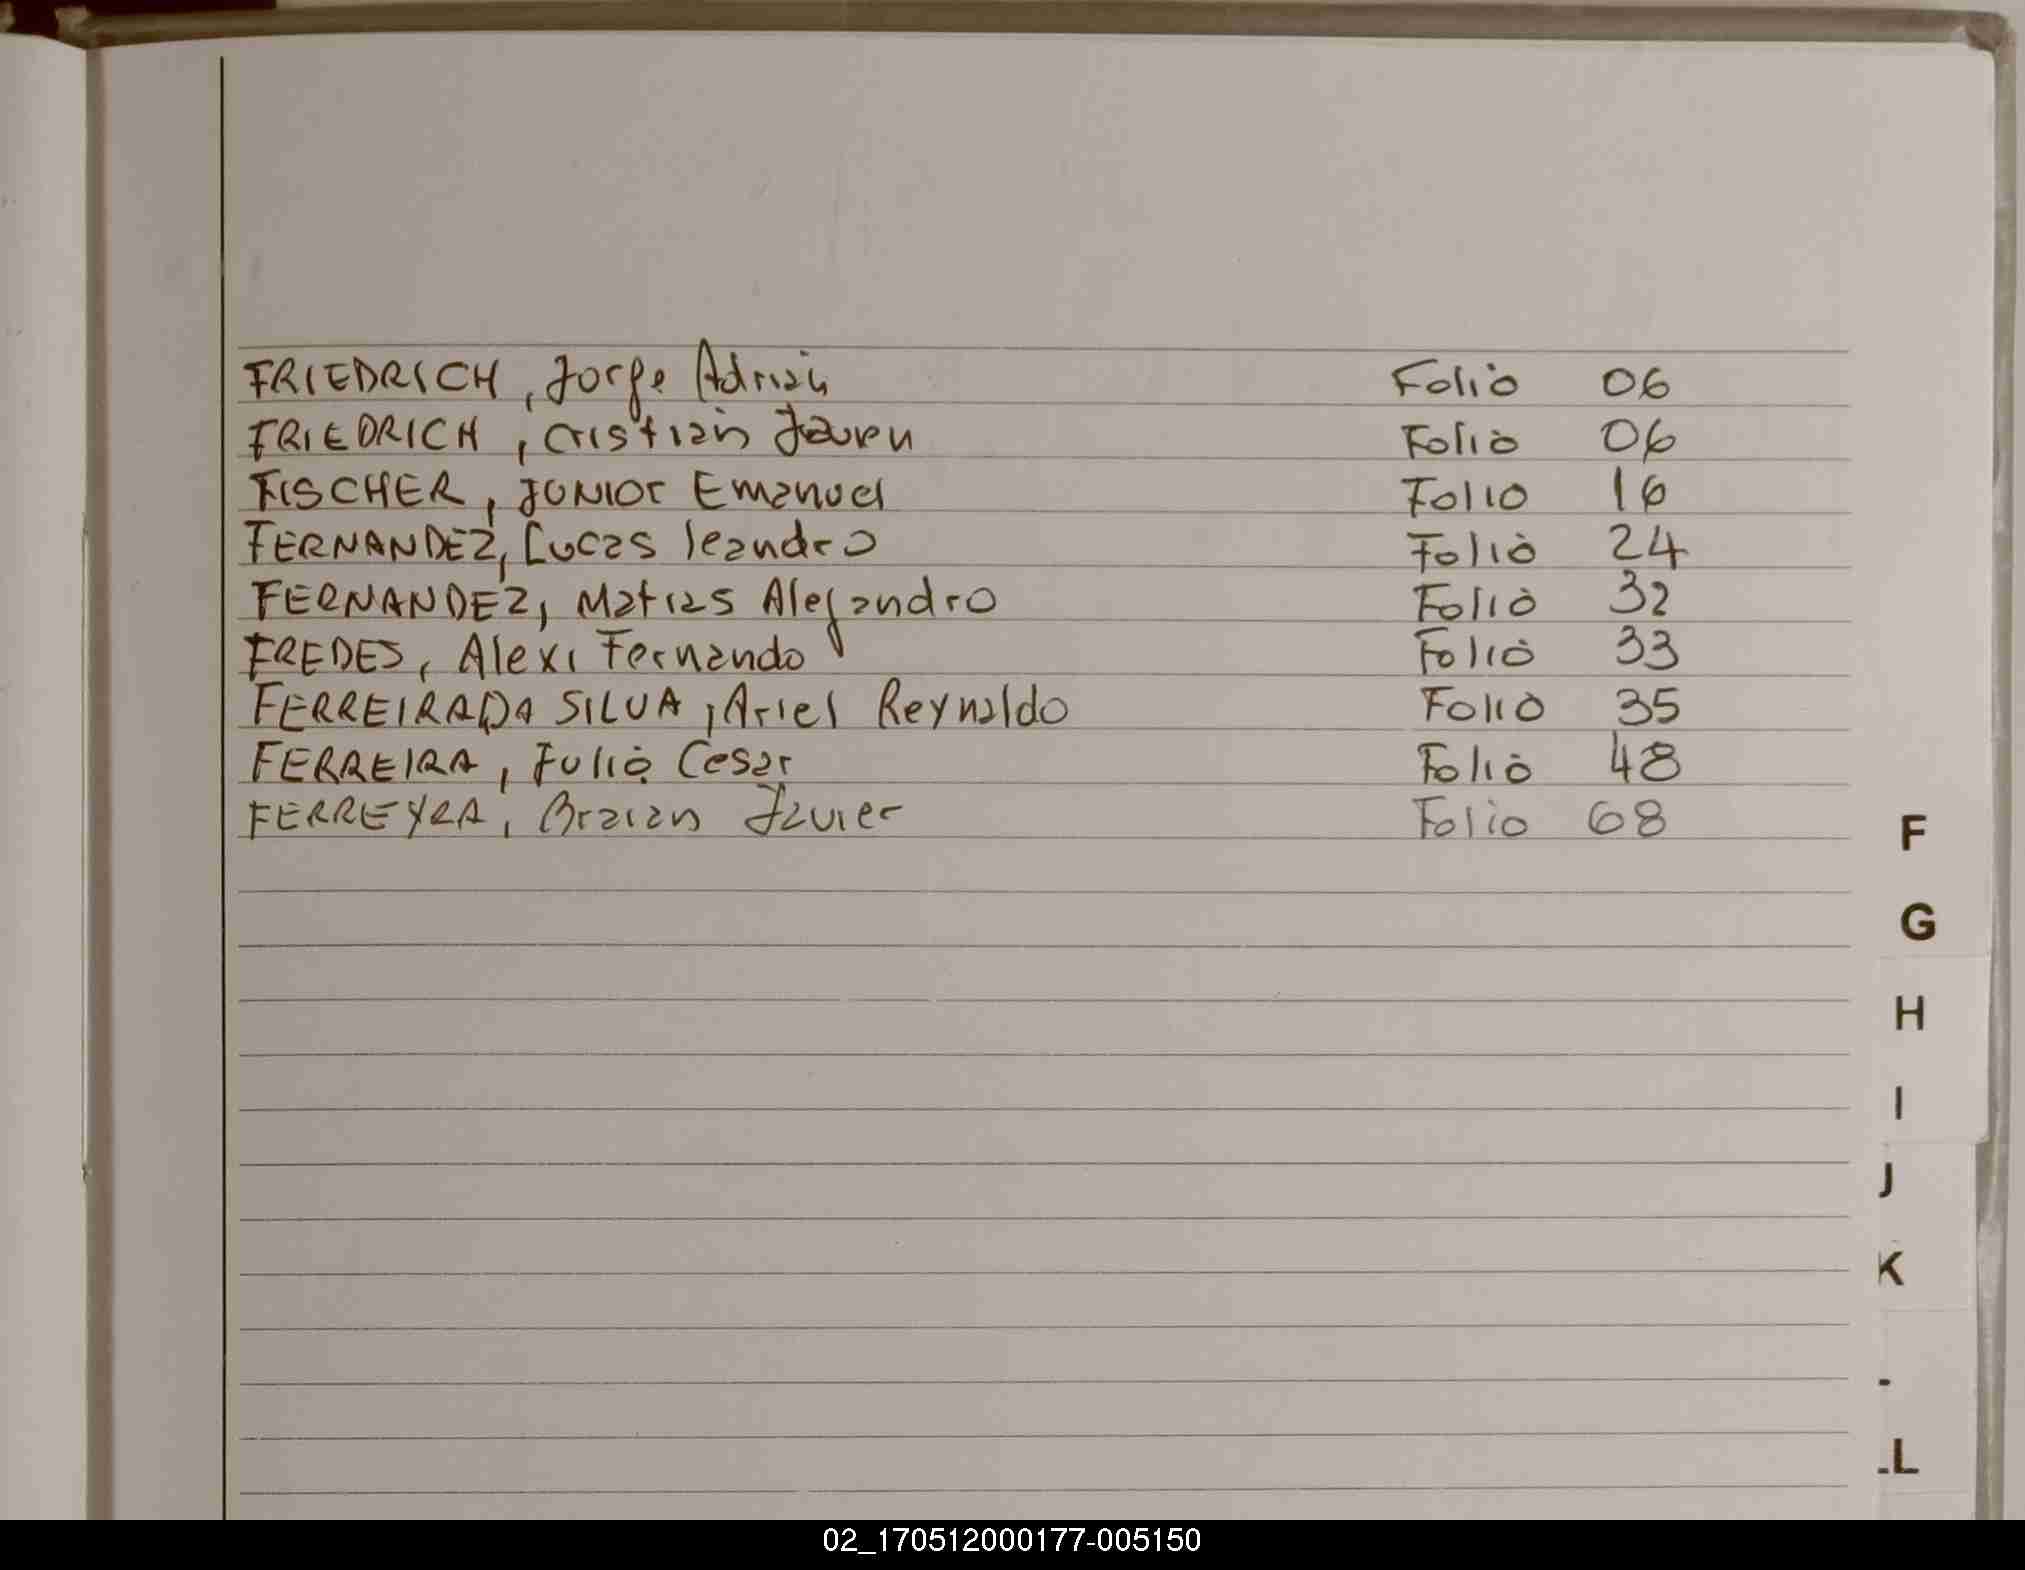 FRIEDRICH, Jorge Adrián Folio 06
FRIEDRICH, Cristian Folio 06
FISCHER, JUNIOR Emanuel Folio 16
FERNANDEZ, Lucas leandro Folio 24
FERNANDEZ, Matias Alejandro Folio 32
FREDES, Alexi Fernando Folio 33
FERREIRA DA SILVA, Ariel Reynaldo Folio 35
FERREIRA, Julio Cesar Folio 48
FERREYRA, Braian Javier Folio 68
F
G
H
I
J
K
L
02_170512000177-005150